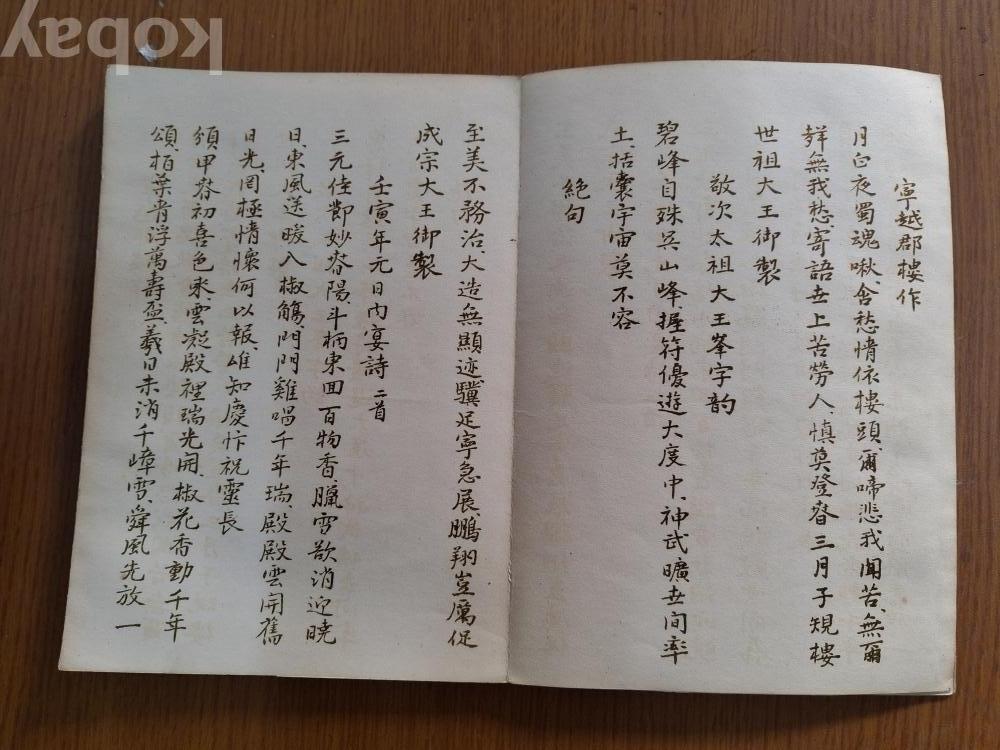 寧越郡樓作
月白夜蜀魂啾、含愁情依樓頭、爾啼悲我聞苦、無爾
聲無我愁、寄語世上苦勞人、愼莫登春三月子規樓
世祖大王御製
敬次太祖大王峯字韵
碧峰自殊吳山峰、握符優遊大度中、神武曠世间率
土、括囊宇宙莫不容
絶句
至美不務治、大造無顯迹、驥足寧急展、鵬翔豈厲促
成宗大王御製
壬寅年元日內宴詩 二首
三元佳節妙春陽、斗柄東回百物香、臘雪欲消迎曉
日、東風送暖入椒觴、門門雞唱千年瑞、殿殿雲開舊
日光、罔極情懷何以報、雄知慶忭祝靈長
頒甲春初喜色來、雲凝殿裡瑞光開、椒花香動千年
頌、栢葉香浮萬壽盃、羲日未消千嶂雪、舜風先放一
kobay